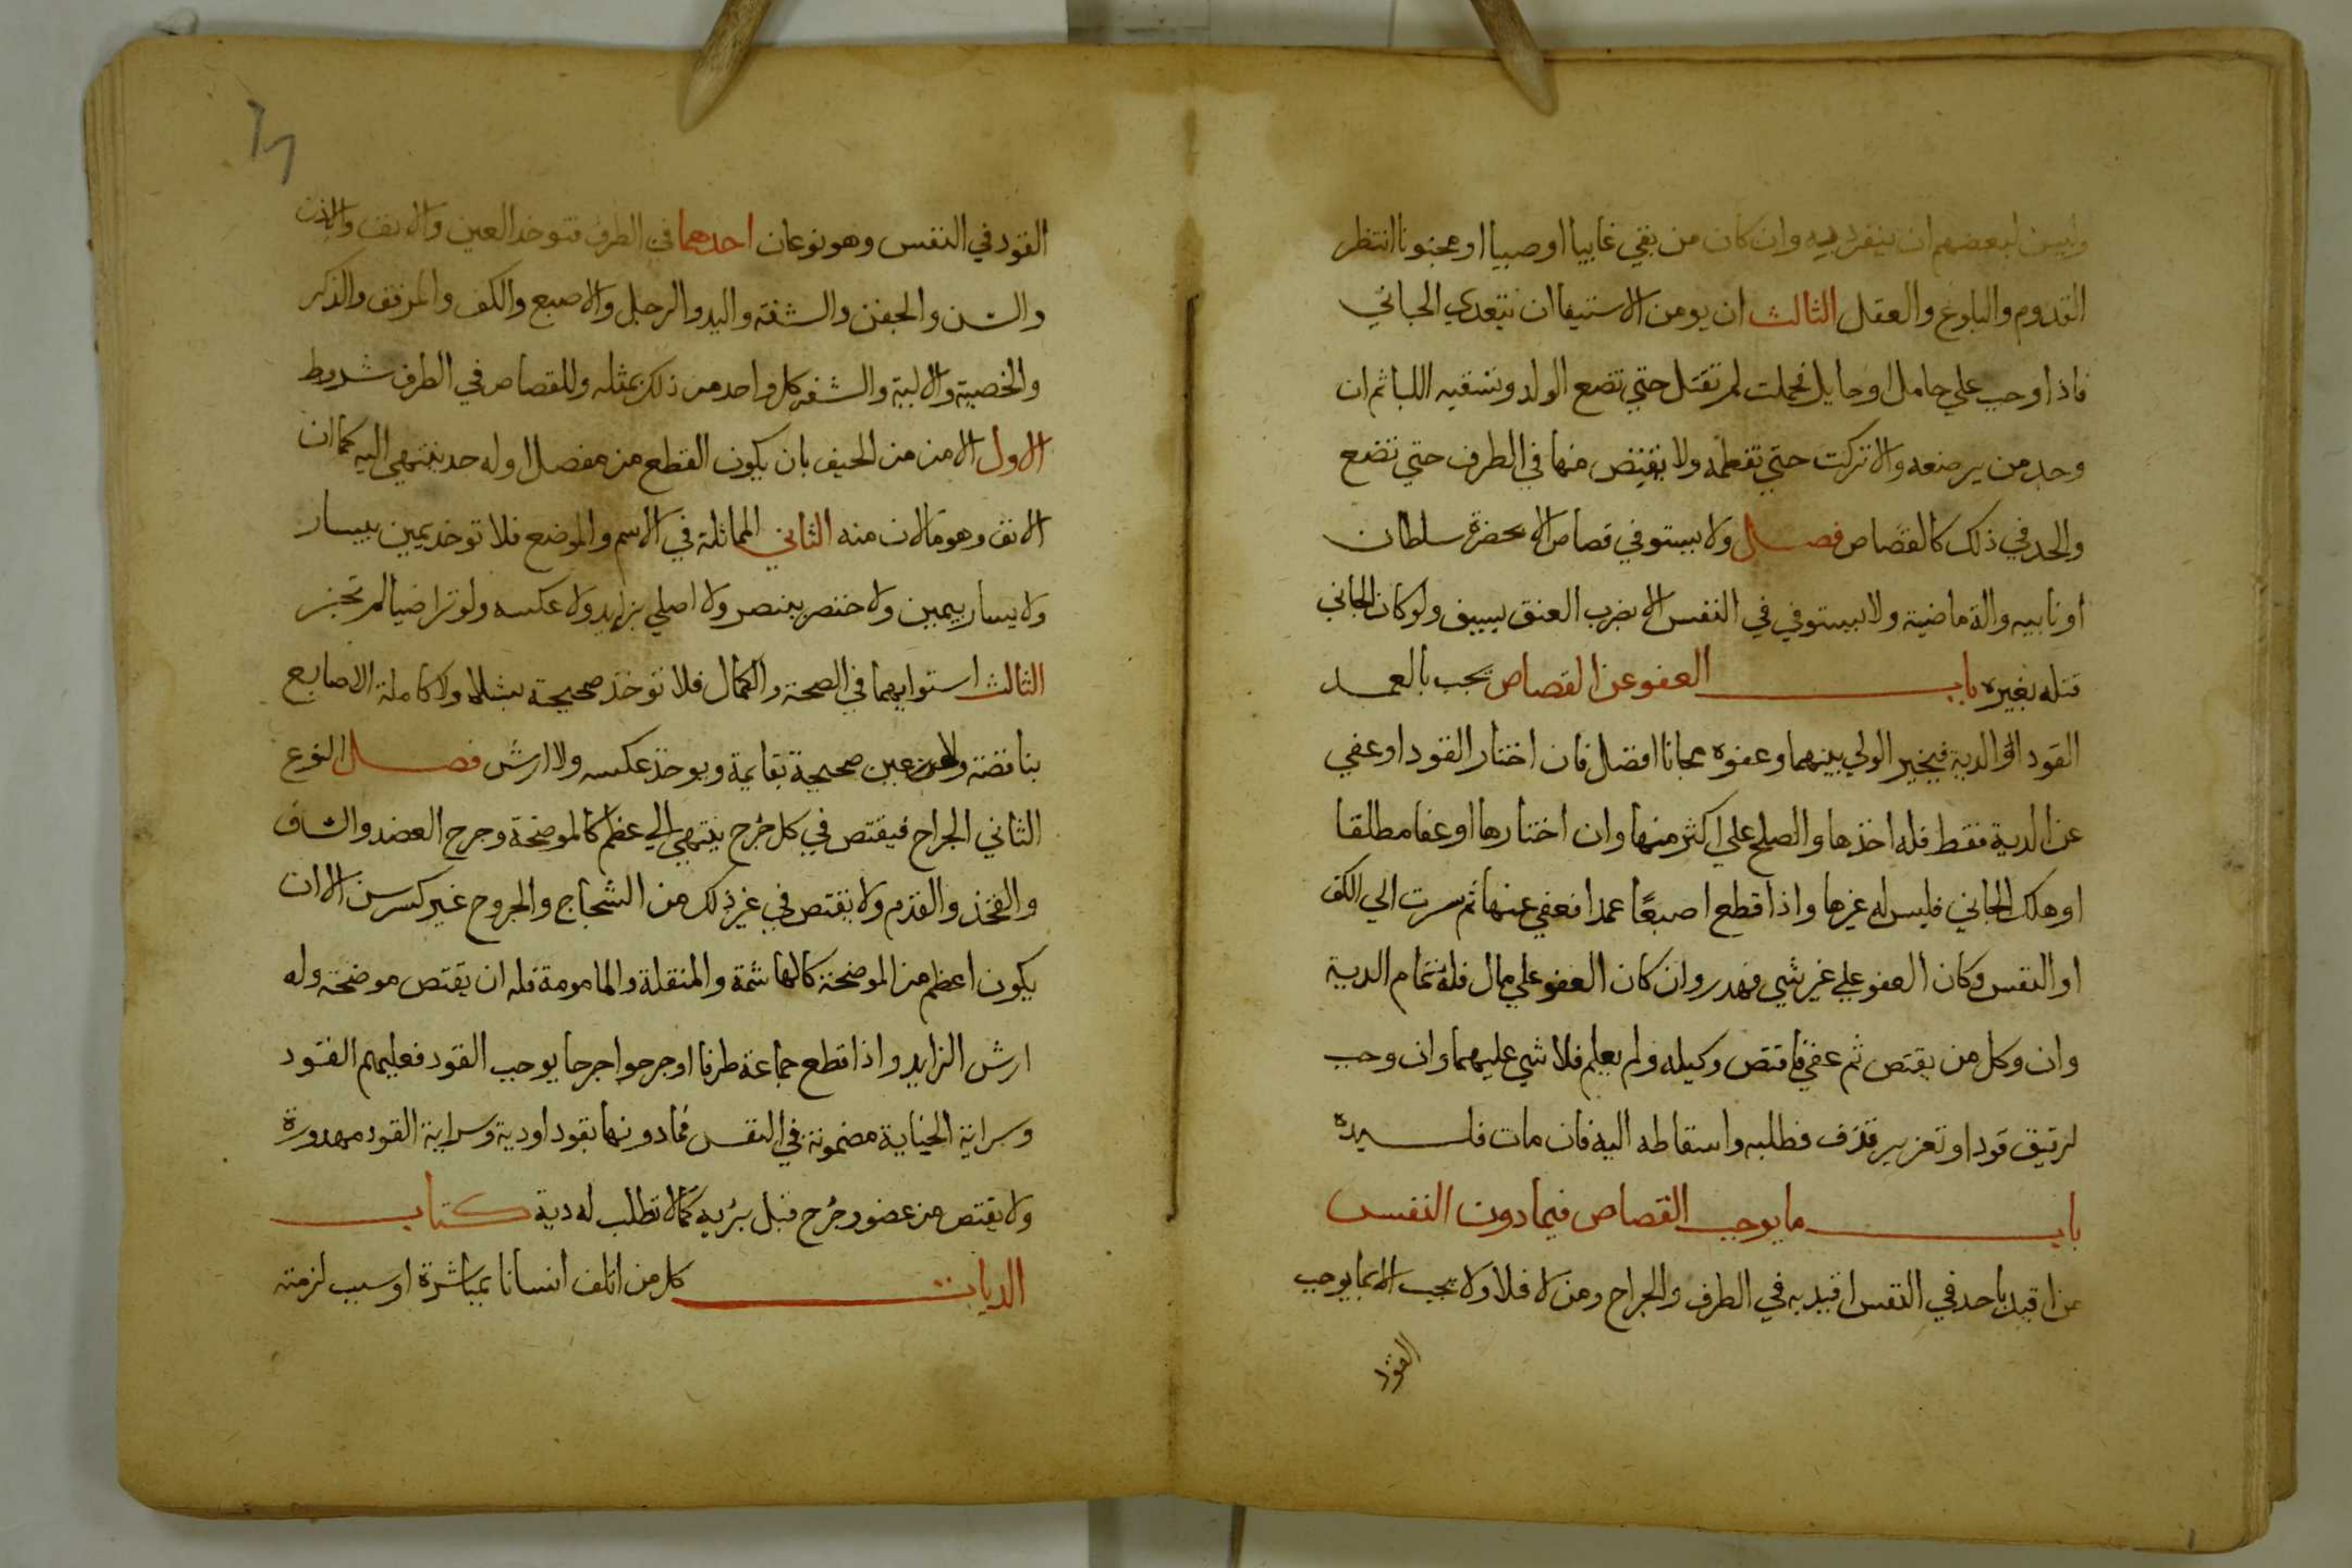 وليس لبعضهم ان ينفرد به وان كان من بقي غايبا او صبيا او مجنونا انتظر
القدوم والبلوغ والعقل الثالث ان يومن الاستيفا ان يتعدي الجاني
فاذا وجب علي حامل او حايل فحملت لم تقتل حتي تضع الولد وتسقيه اللبا ثم ان
وجد من يرضعه والا تركت حتي تفطمه ولا يقتص منها في الطرف حتي تضع
والحد في ذلك كالقصاص فصل ولا يستوفي قصاص الا بحضرة سلطان
او نايبه والة ماضية ولا يستوفي في النفس الا بضرب العنق بسيف ولو كان الجاني
قتله بغيره باب العفو عن القصاص يجب بالعمد
القود او الدية فيخير الولي بينهما وعفوه مجانا افضل فان اختار القود او عفي
عن الدية فقط فله اخذها والصلح علي اكثر منها وان اختارها او عفا مطلقا
او هلك الجاني فليس له غيرها واذا قطع اصبعًا عمدا فعفي عنها ثم سرت الي الكف
او النفس وكان العفو علي غير شي فهدر وان كان العفو علي مال فله تمام الدية
وان وكل من يقتص ثم عفي فاقتص وكيله ولم يعلم فلا شي عليهما وان وجب
لرقيق قود او تعزير قذف فطلبه واسقاطه اليه فان مات فلسيده
باب ما يوجب القصاص فيما دون النفس
من اقيد باحد في النفس اقيد به في الطرف والجراح ومن لا فلا ولا يجب الا بما يوجب
القود
القود في النفس وهو نوعان احدهما في الطرف فتوخذ العين والانف والاذن
والسن والجفن والشفة واليد والرجل والاصبع والكف والمرفق والذكر
والخصية والالية والشفر كل واحد من ذلك بمثله وللقصاص في الطرف شروط
الاول الامن من الحيف بان يكون القطع من مفصل او له حد ينتهي اليه كمارن
الانف وهو ما لان منه الثاني المماثلة في الاسم والموضع فلا توخذ يمين بيسار
ولا يسار بيمين ولا خنصر ببنصر ولا اصلي بزايد ولا عكسه ولو تراضيا لم تجز
الثالث استوايهما في الصحة والكمال فلا توخذ صحيحة بشلا ولا كاملة الاصابع
بناقصة ولا عين صحيحة بقايمة ويوخذ عكسه ولا ارش فصل النوع
الثاني الجراح فيقتص في كل جرح ينتهي الي عظم كالموضحة وجرح العضد والساق
والفخذ والقدم ولا يقتص في غير ذلك من الشجاج والجروح غير كسر سن الا ان
يكون اعظم من الموضحة كالهاشمة والمنقلة والمامومة فله ان يقتص موضحة وله
ارش الزايد واذا قطع جماعة طرفا او جرحوا جرحا يوجب القود فعليهم القود
وسراية الجناية مضمونة في النفس فما دونها بقود او دية وسراية القود مهدورة
ولا يقتص من عضو وجرح قبل بريه كما لا تطلب له دية كتاب
الديات كل من اتلف انسانا بمباشرة او سبب لزمته